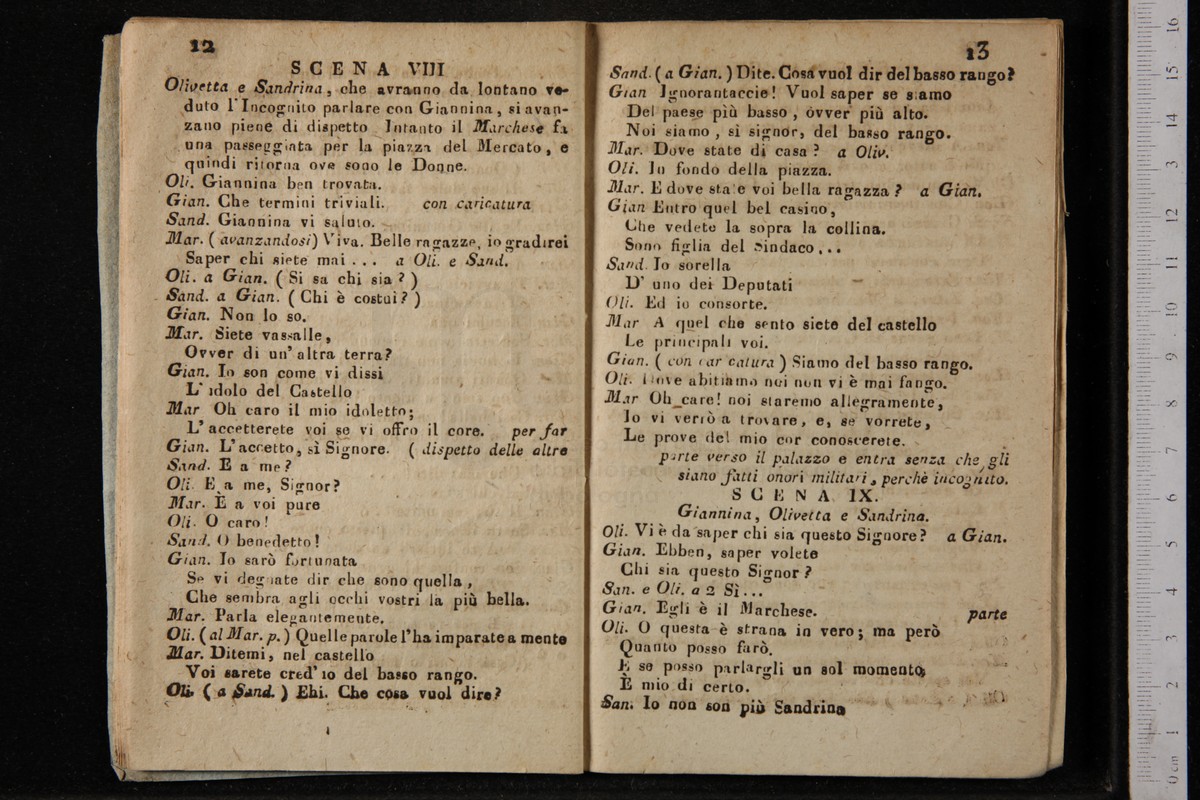 12
SCENA VIII
Olivetta e Sandrina, che avranno da lontano ve-
duto l'Incognito parlare con Giannina, si avan-
zano piene di dispetto Intanto il Marchese fa
una passeggiata per la piazza del Mercato, e
quindi ritorna ove sono le Donne.
Oli. Giannina ben trovata.
Gian. Che termini triviali. con caricatura
Sand. Giannina vi saluto.
Mar. (avanzandosi) Viva. Belle ragazze, io gradirei
Saper chi siete mai... a Oli. e Sand.
Oli. a Gian. (Si sa chi sia?)
Sand. a Gian. (Chi è costui?)
Gian. Non lo so.
Mar. Siete vassalle,
Ovver di un'altra terra?
Gian. Io son come vi dissi
L'idolo del Castello
Mar Oh caro il mio idoletto;
L'accetterete voi se vi offro il core. per far
Gian. L'accetto, sì Signore. (dispetto delle altre
Sand. E a me?
Oli. E a me, Signor?
Mar. E a voi pure
Oli. O caro!
Sand. O benedetto!
Gian. Io sarò fortunata
Se vi degnate dir che sono quella,
Che sembra agli occhi vostri la più bella.
Mar. Parla elegantemente.
Oli. (al Mar. p.) Quelle parole l'ha imparate a mente
Mar. Ditemi, nel castello
Voi sarete cred'io del basso rango.
Oli. (a Sand.) Ehi. Che cosa vuol dire?
13
Sand. (a Gian.) Dite. Cosa vuol dir del basso rango?
Gian Ignorantaccie! Vuol saper se siamo
Del paese più basso, ovver più alto.
Noi siamo, sì signor, del basso rango.
Mar. Dove state di casa? a Oliv.
Oli. In fondo della piazza.
Mar. E dove state voi bella ragazza? a Gian.
Gian Entro quel bel casino,
Che vedete la sopra la collina.
Sono figlia del Sindaco...
Sand. Io sorella
D' uno dei Deputati
Oli. Ed io consorte.
Mar A quel che sento siete del castello
Le principali voi.
Gian. (con caricatura) Siamo del basso rango.
Oli. Dove abitiamo noi non vi è mai fango.
Mar Oh care! noi staremo allegramente,
Io vi verrò a trovare, e, se vorrete,
Le prove del mio cor conoscerete.
parte verso il palazzo e entra senza che gli
siano fatti onori militari, perchè incognito.
SCENA IX.
Giannina, Olivetta e Sandrina.
Oli. Vi è da saper chi sia questo Signore? a Gian.
Gian. Ebben, saper volete
Chi sia questo Signor?
San. e Oli. a 2 Sì...
Gian. Egli è il Marchese. parte
Oli. O questa è strana in vero; ma però
Quanto posso farò.
E se posso parlargli un sol momento,
È mio di certo.
San. Io non son più Sandrina
0 cm 1 2 3 4 5 6 7 8 9 10 11 12 13 14 15 16